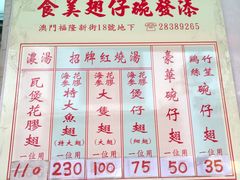 食美翅仔碗發添
澳門福隆新街18號地下 ☎28389265
濃湯
招牌紅燒湯
瓦煲花膠翅
一位用
110
海花參膠
特大魚翅
(特大翅)
一位用
230
海花參膠
大隻翅
(大翅)
一位用
100
煲仔翅
(細翅)
一位用
75
豪華碗仔翅
一位用
50
鷄絲竹笙碗仔翅
一位用
35